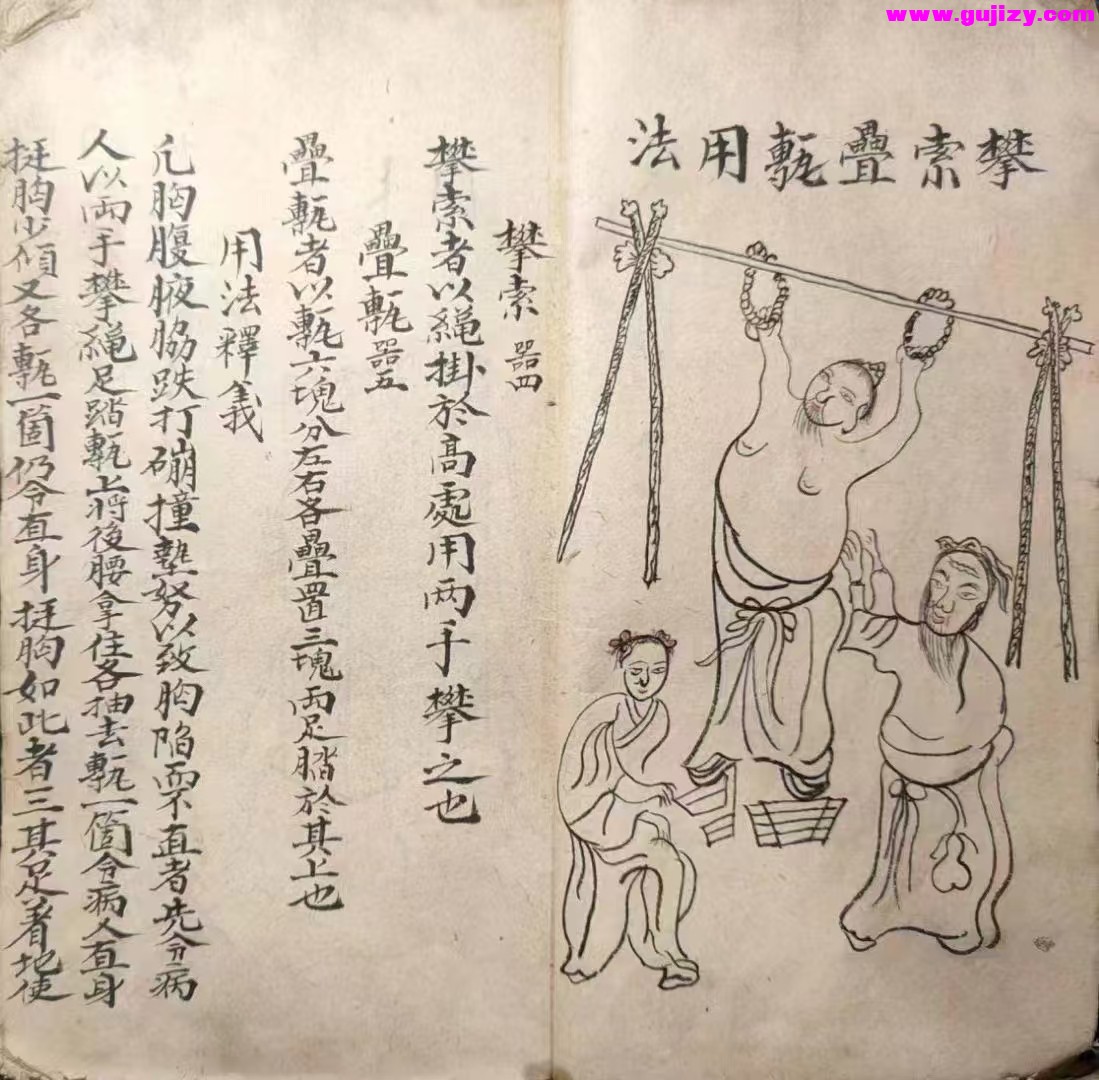 www.gujizy.com
攀索疊甎用法
攀索 器四
攀索者以繩掛於高處用两手攀之也
疊甎 器五
疊甎者以甎六塊分左右各疊置三塊両足踏於其上也
用法釋義
凡胸腹腋脇跌打磞撞墊努以致胸陷而不直者先令病
人以両手攀繩足踏甎上將後腰拿住各抽去甎一箇令病人直身
挺胸少頃又各甎一箇仍令直身挺胸如此者三其足着地使